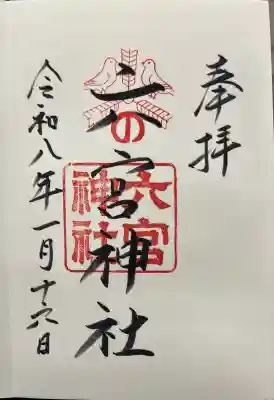 奉拝
六の宮神社
六宮神社
令和八年一月十六日